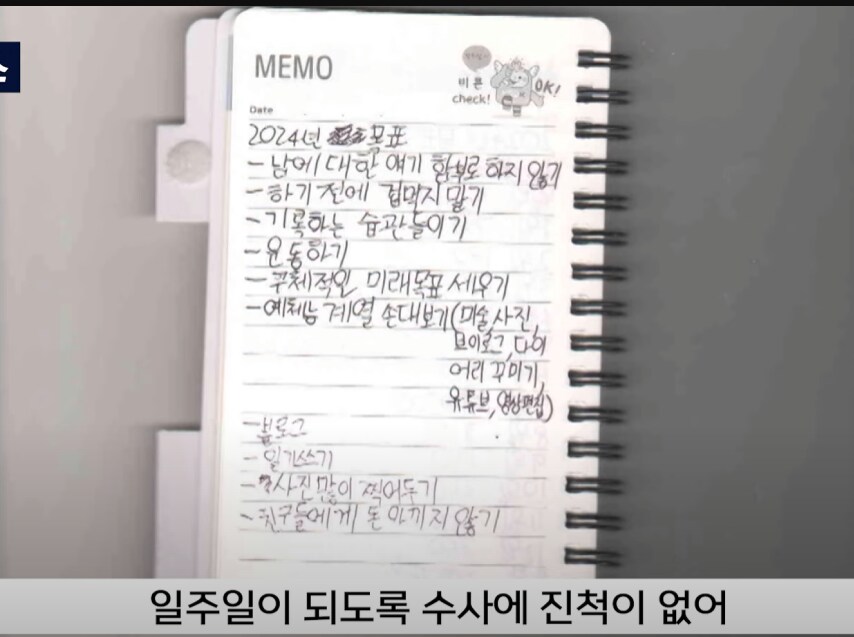 스
MEMO
비 콘
check!
OK!
Date
2024년 목표
- 남에 대한 얘기 함부로 하지 않기
- 하기 전에 겁먹지 말기
- 기록하는 습관들이기
- 운동하기
- 구체적인 미래목표 세우기
- 예체능 계열 손대보기(미술,사진,
브이로그,다이
어리 꾸미기,
유튜브,영상편집)
- 블로그
- 일기쓰기
- 사진 많이 찍어두기
- 친구들에게 돈 아끼지 않기
일주일이 되도록 수사에 진척이 없어